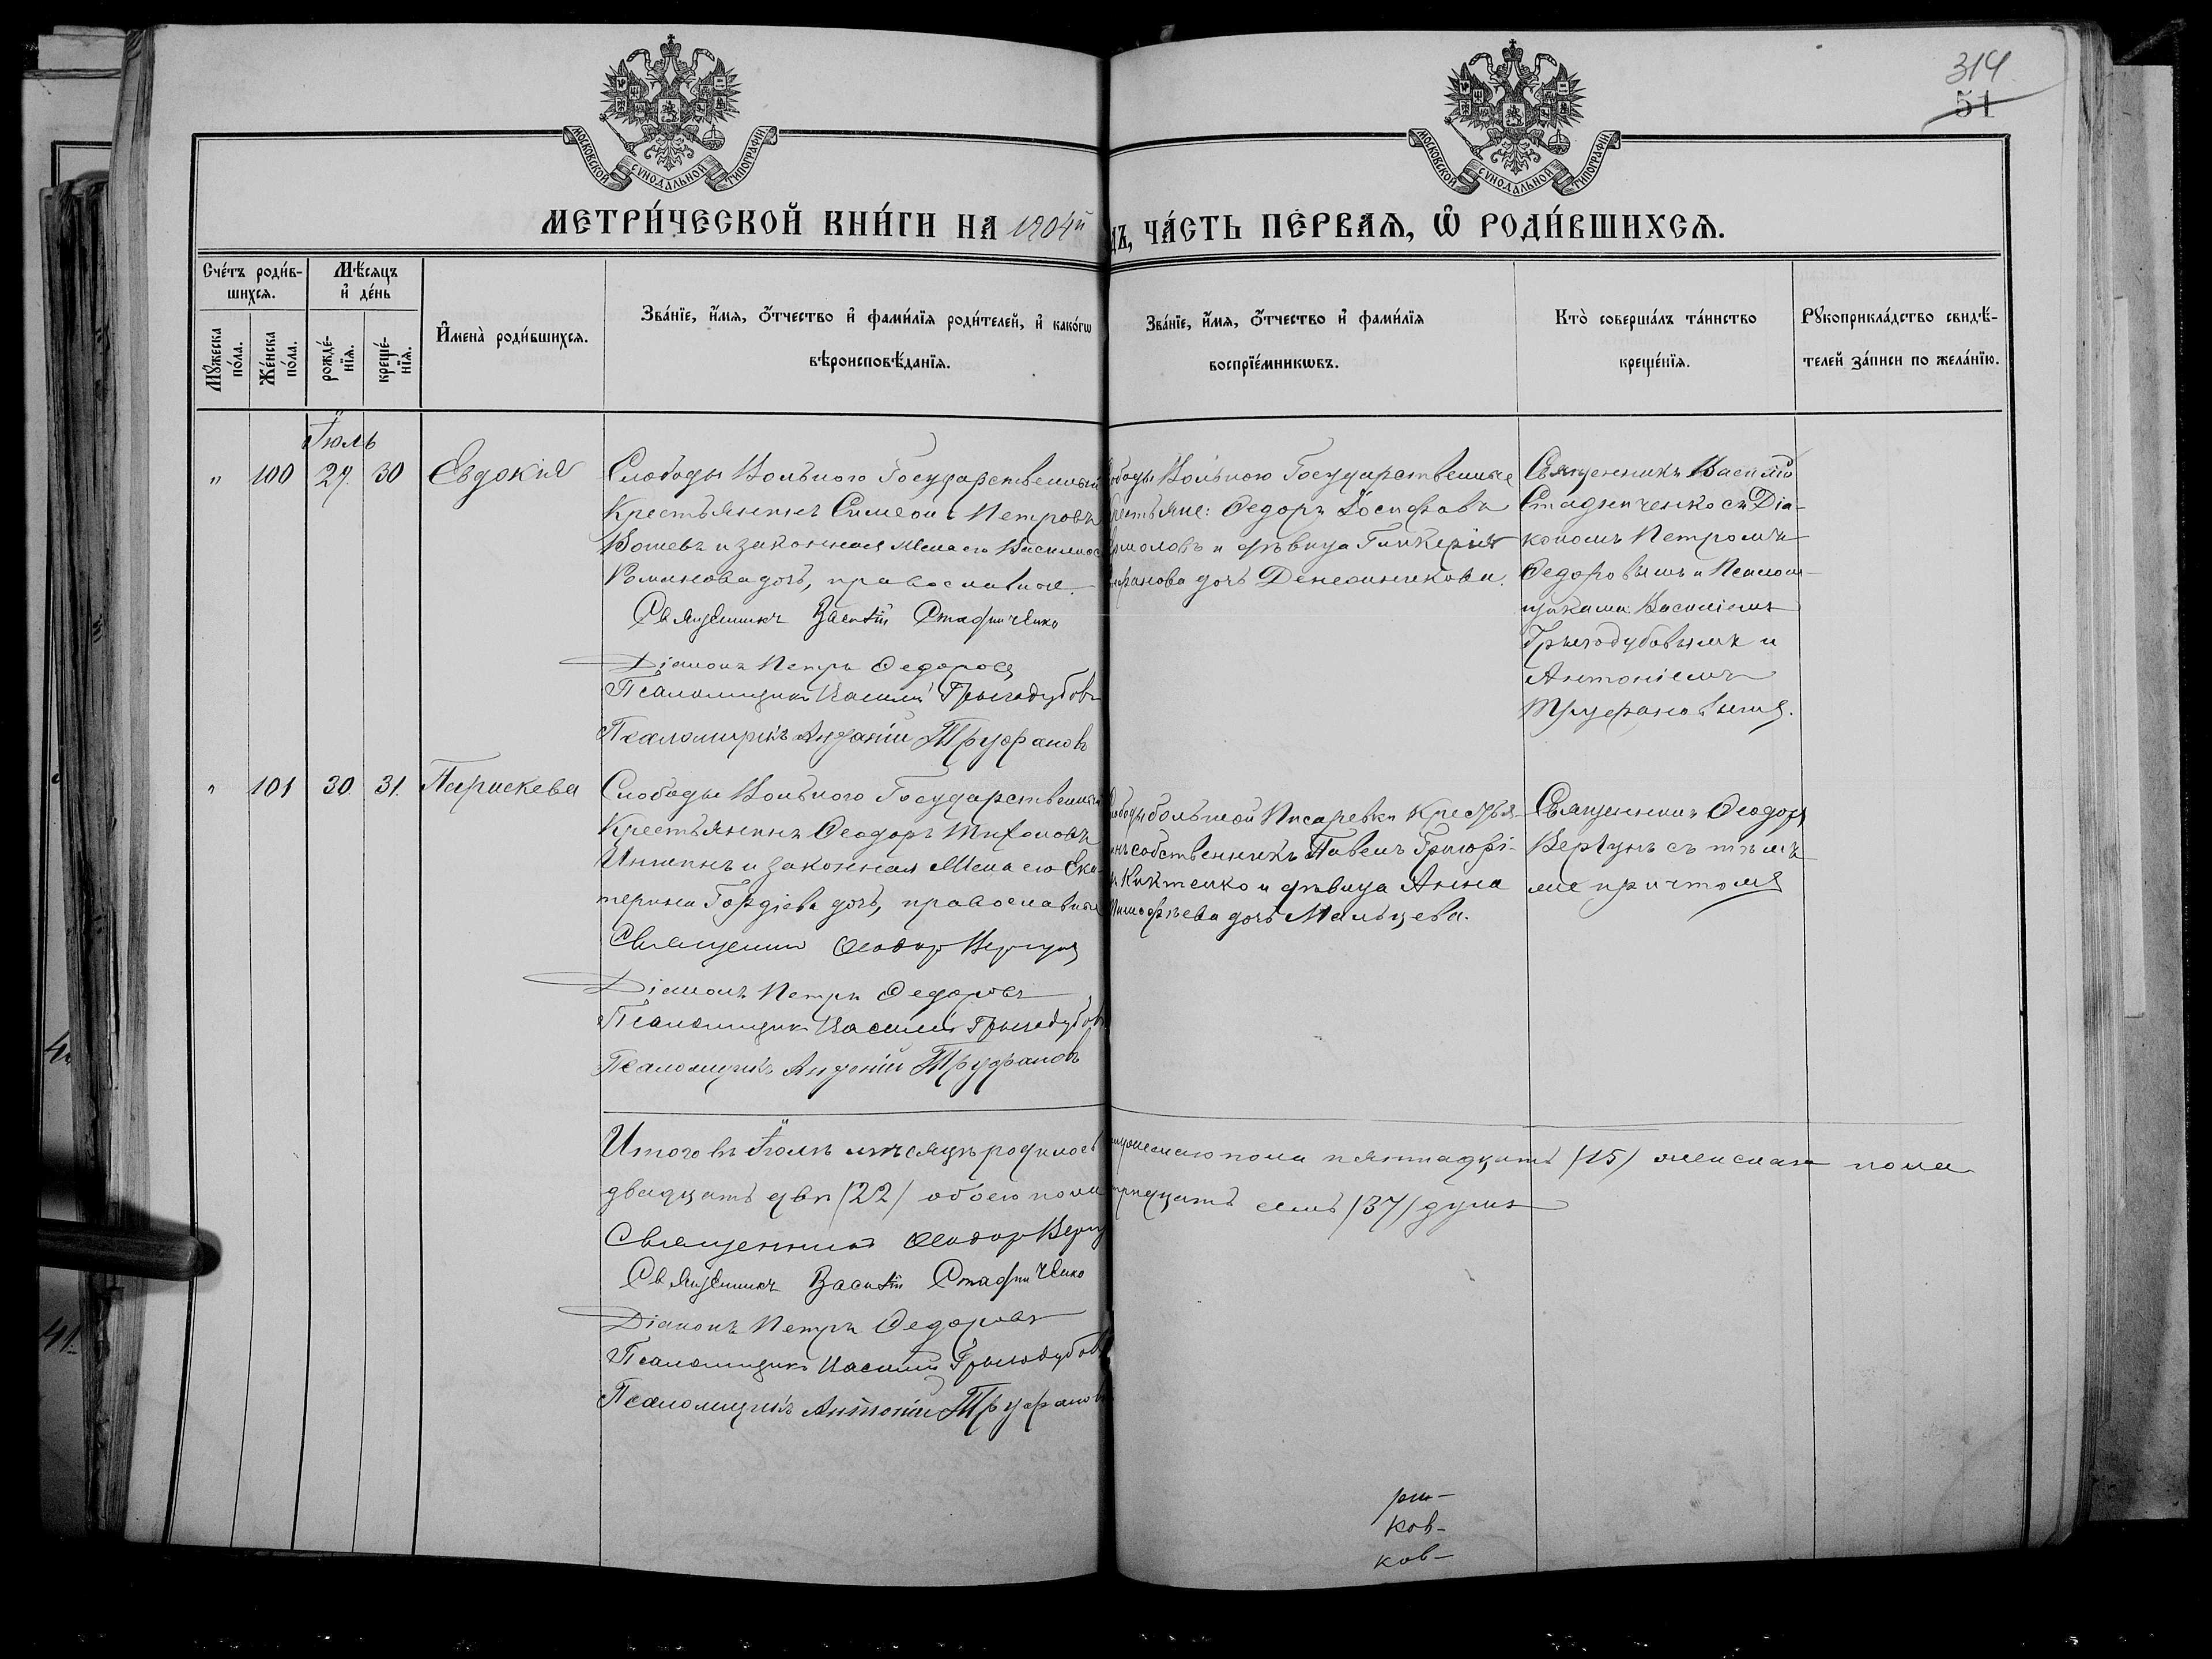 314
51
МОСКОВСКОЙ СѴНОДАЛЬНОЙ ТИПОГРАФІИ
МОСКОВСКОЙ СѴНОДАЛЬНОЙ ТИПОГРАФІИ
МЕТРИ́ЧЕСКОЙ КНИ́ГИ НА 1904й
ДЪ, ЧА́СТЬ ПЕ́РВАЯ, Ѡ РОДИ́ВШИХСЯ.
Сче́тъ роди́в-
шихся.
Мꙋ́жеска по́ла.
Же́нска по́ла.
Мѣ́сяцъ
и҆ де́нь
рожде́-
нїя.
креще́-
нїя.
И҆мена̀ роди́вшихся.
Зва́нїе, и҆́мя, ѻ҆́тчество и҆ фами́лїя роди́телей, и҆ како́гѡ
вѣроисповѣ́данїя.
Зва́нїе, и҆́мя, ѻ҆́тчество и҆ фами́лїя
воспрїе́мникѡвъ.
Кто̀ соверша́лъ та́инство
креще́нїя.
Рꙋкоприкла́дство свидѣ́-
телей за́писи по жела́нїю.
Іюль
" 100 27. 30 Евдокія
Слободы Вольного Государственный
Крестьянинъ Симеонъ Петровъ
и законная жена его
Романова дочь, православные.
Священникъ Василій Стадниченко
Діаконъ Петръ Федоровъ
Псаломщикъ Василій Грызодубовъ
Псаломщикъ Антоній Труфановъ
Вольного Государственные
Федоръ Іосифовъ
и дѣвица Гликерія
дочь
Священникъ Василій
Стадниченко съ Діа-
кономъ Петромъ
Федоровымъ и Псалом-
щиками Василіемъ
Грызодубовымъ и
Антоніемъ
Труфановымъ.
" 101 30. 31. Параскева
Слободы Вольного Государственный
Крестьянинъ Феодоръ
и законная жена его Ека-
терина Гордіева дочь, православные
Священникъ Феодоръ Вергунъ
Діаконъ Петръ Федоровъ
Псаломщикъ Василій Грызодубовъ
Псаломщикъ Антоній Труфановъ
большой Писаревки Крестья-
собственникъ Павелъ Григорі-
и дѣвица Анна
дочь Мальцева.
Священникъ Феодоръ
Вергунъ съ тѣмъ
же причтомъ
Итого въ Іюлѣ мѣсяцѣ родилось
мужескаго пола пятнадцать /15/ женскаго пола
двадцать двѣ /22/ обоего пола
тридцать семь /37/ душъ
Священникъ Феодоръ Вергу
Священникъ Василій Стадниченко
Діаконъ Петръ Федоровъ
Псаломщикъ Василій Грызодубов
Псаломщикъ Антоній Труфанов
ков-
ков-